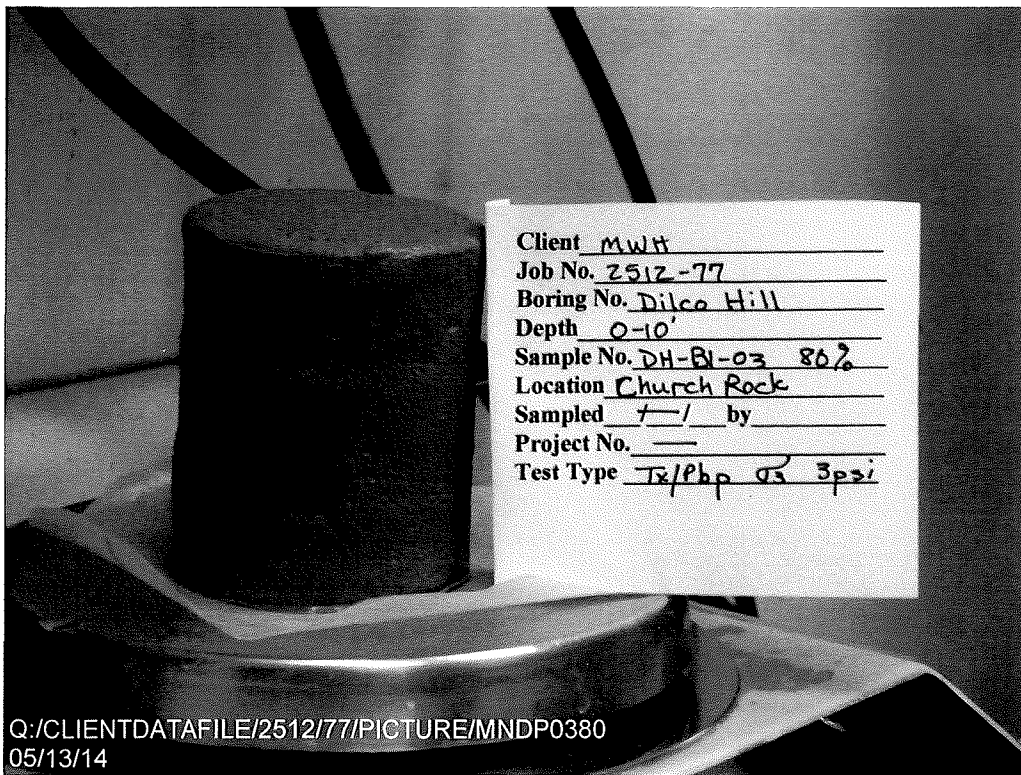 Client MWH
Job No. 2512-77
Boring No. Dilco Hill
Depth 0-10'
Sample No. DH-BI-03 80%
Location Church Rock
Sampled / / by
Project No. —
Test Type Tx/Pbp σ3 3psi
Q:/CLIENTDATAFILE/2512/77/PICTURE/MNDP0380
05/13/14